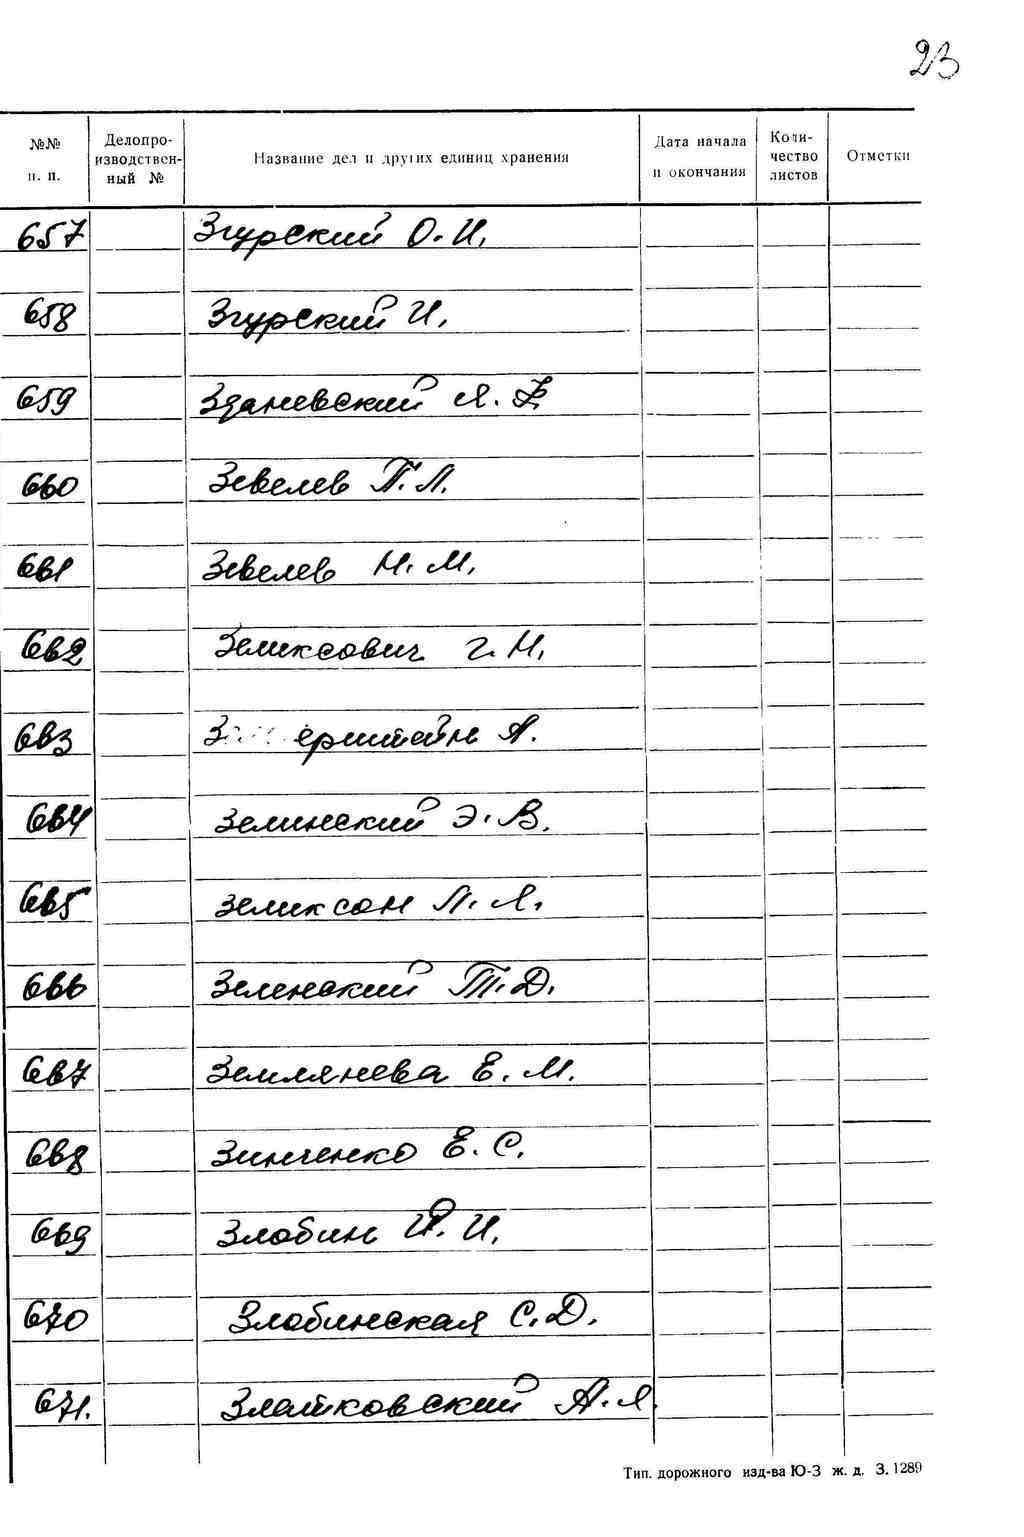 23
№№ п. п. Делопроизводственный № Название дел и других единиц хранения Дата начала и окончания Количество листов Отметки
657 Згурский О. И.
658 Згурский И.
659 Зданевский Я. Ф.
660 Зевелев П. Л.
661 Зевелев Н. М.
662 Зеликсович Г. Н.
663 А.
664 Зелинский Э. В.
665 Зеликсон Л. Л.
666 Зеленский Т. Д.
667 Землянева Е. М.
668 Зинченко Е. С.
669 Злобин Й. И.
670 Злобинская С. Д.
671. Златковский А. Я.
Тип. дорожного изд-ва Ю-З ж. д. З. 1289